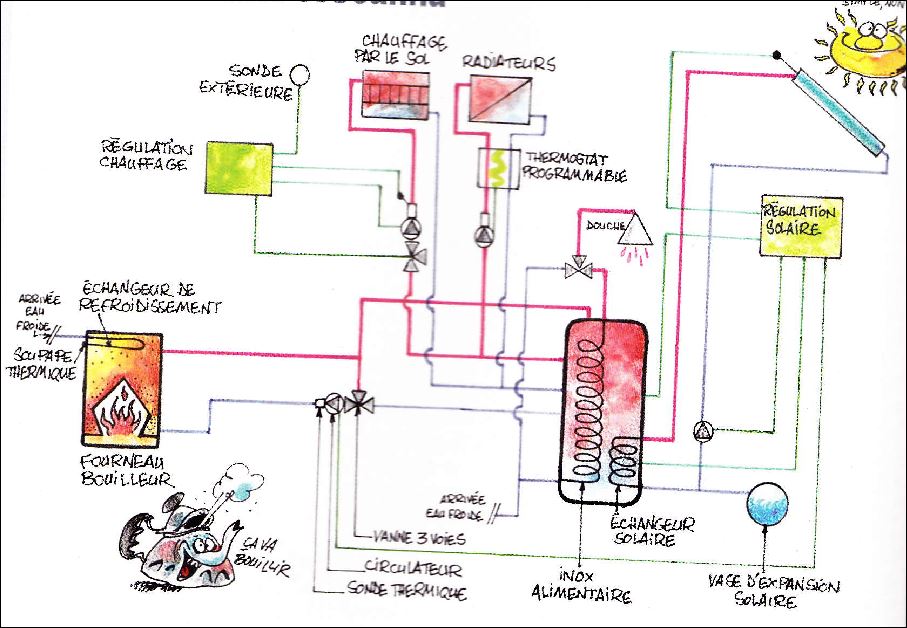 SIMPLE, NON
CHAUFFAGE
PAR LE SOL
RADIATEURS
SONDE
EXTÉRIEURE
RÉGULATION
CHAUFFAGE
THERMOSTAT
PROGRAMMABLE
RÉGULATION
SOLAIRE
DOUCHE
ÉCHANGEUR DE
REFROIDISSEMENT
ARRIVÉE
EAU
FROIDE
SOUPAPE
THERMIQUE
FOURNEAU
BOUILLEUR
ARRIVÉE
EAU FROIDE
ÉCHANGEUR
SOLAIRE
ÇA VA
BOUILLIR
VANNE 3 VOIES
CIRCULATEUR
SONDE THERMIQUE
INOX
ALIMENTAIRE
VASE D'EXPANSION
SOLAIRE